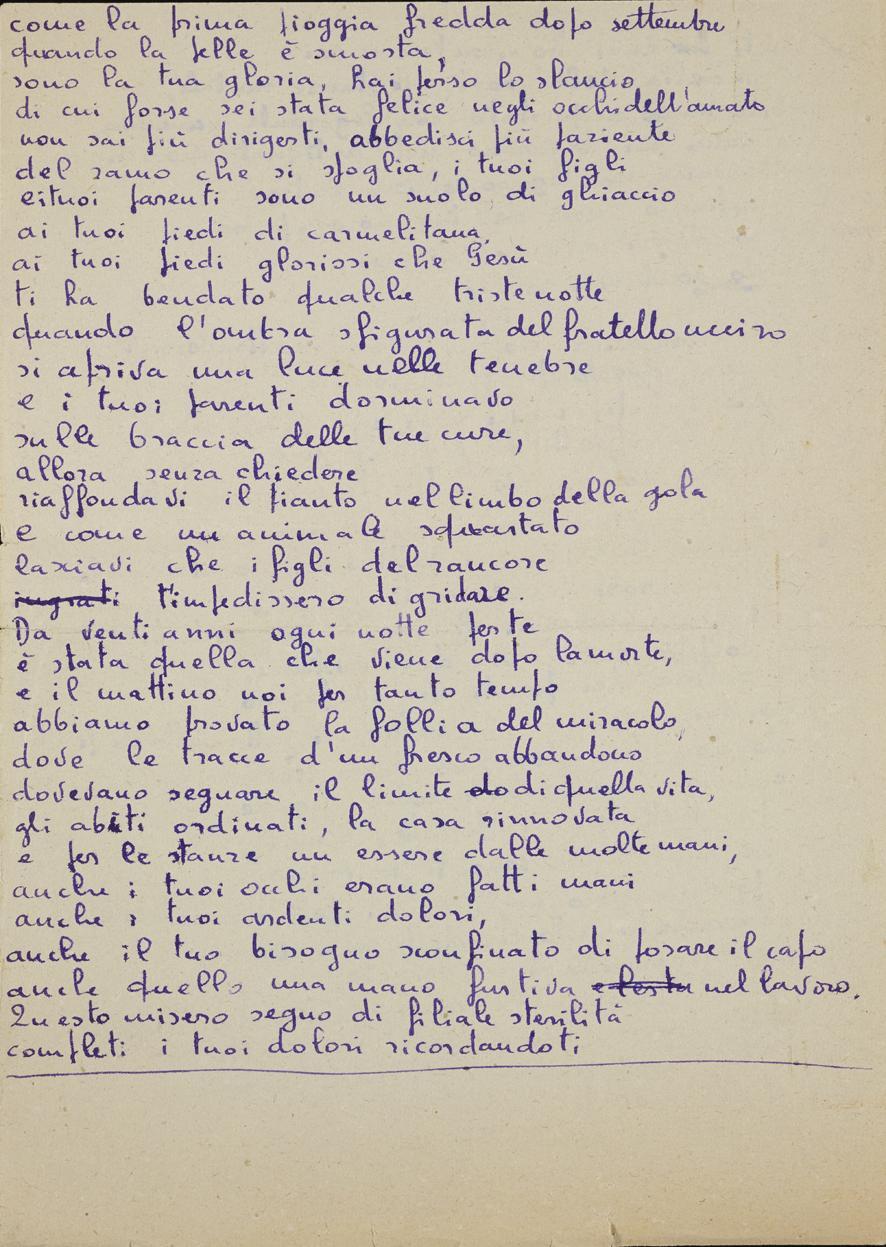 come la prima pioggia fredda dopo settembre
quando la pelle è smorta,
sono la tua gloria, hai perso lo slancio
di cui forse sei stata felice negli occhi dell'amato
non sai più dirigerti, abbedisci più paziente
del ramo che si sfoglia, i tuoi figli
e i tuoi parenti sono un suolo di ghiaccio
ai tuoi piedi di carmelitana,
ai tuoi piedi gloriosi che Gesù
ti ha bendato qualche triste notte
quando l'ombra sfigurata del fratello ucciso
si apriva una luce nelle tenebre
e i tuoi parenti dormivano
sulle braccia delle tue cure,
allora senza chiedere
riaffondavi il pianto nel limbo della gola
e come un animale squartato
lasciavi che i figli del rancore
ingrati t'impedissero di gridare.
Da venti anni ogni notte per te
è stata quella che viene dopo la morte,
e il mattino noi per tanto tempo
abbiamo provato la follia del miracolo,
dove le tracce d'un fresco abbandono
dovevano segnare il limite do di quella vita,
gli abiti ordinati, la casa rinnovata
e per le stanze un essere dalle molte mani,
anche i tuoi occhi erano fatti mani
anche i tuoi ardenti dolori,
anche il tuo bisogno sconfinato di posare il capo
anche quello una mano furtiva e lesta nel lavoro.
Questo misero segno di filiale sterilità
completi i tuoi dolori ricordandoti